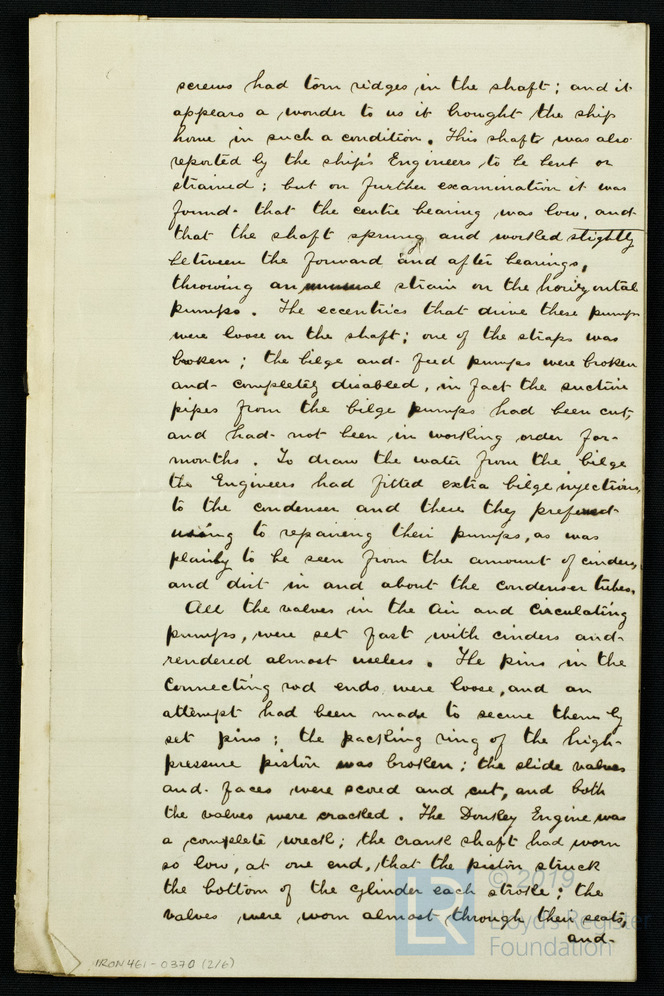 screws had torn ridges in the shaft; and it
appears a wonder to us it brought the ship
home in such a condition. This shaft was also
reported by the ship's Engineers to be bent or
strained; but on further examination it was
found that the centre bearing was low, and
that the shaft sprung and worked slightly
between the forward and after bearings,
throwing an unusual strain on the horizontal
pumps. The eccentrics that drive these pumps
were loose on the shaft; one of the straps was
broken; the bilge and feed pumps were broken
and completely disabled, in fact the suction
pipes from the bilge pumps had been cut,
and had not been in working order for
months. To draw the water from the bilge
the Engineers had fitted extra bilge injections,
to the condenser and these they prefered
using to repairing their pumps, as was
plainly to be seen from the amount of cinders,
and dirt in and about the condenser tubes.
All the valves in the Air and Circulating
pumps, were set fast with cinders and
rendered almost useless. The pins in the
Connecting rod ends were loose, and an
attempt had been made to secure them by
set pins; the packing ring of the high-
pressure piston was broken; the slide valves
and faces were scored and cut, and both
the valves were cracked. The Donkey Engine was
a complete wreck; the crank shaft had worn
so low, at one end, that the piston struck
the bottom of the cylinder each stroke; the
valves were worn almost through their seats,
and
IRON461-0370 (2/6)
© 2019
LR
Lloyd's Register
Foundation